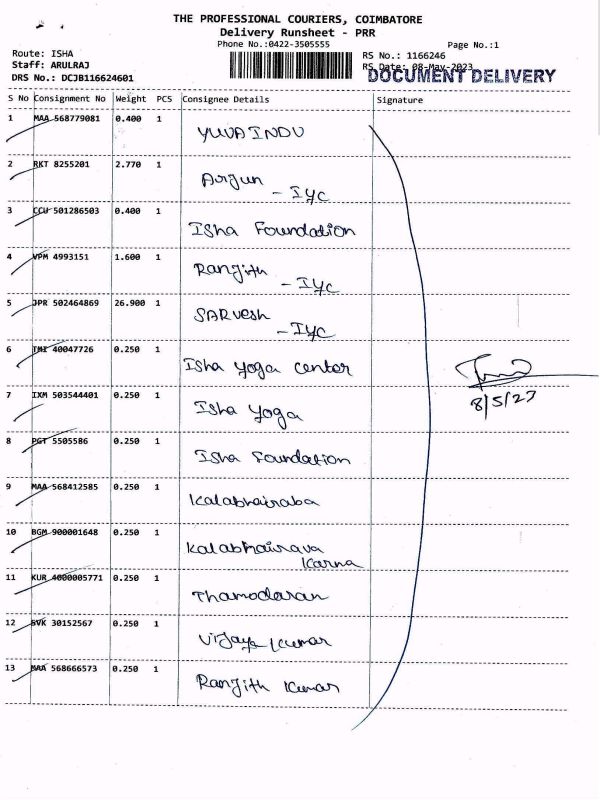 THE PROFESSIONAL COURIERS, COIMBATORE
Delivery Runsheet - PRR
Phone No.:0422-3505555
Page No.:1
Route: ISHA
RS No.: 1166246
Staff: ARULRAJ
RS Date: 08-May-2023
DRS No.: DCJB116624601
DOCUMENT DELIVERY
S No Consignment No Weight PCS Consignee Details Signature
1 MAA 568779081 0.400 1 YUVA INDU
2 RKT 8255201 2.770 1 Arjun
- IYC
3 CCU 501286503 0.400 1 Isha Foundation
4 VPM 4993151 1.600 1 Ranjith
- IYC
5 JPR 502464869 26.900 1 SARVesh
- IYC
6 TMI 40047726 0.250 1 Isha Yoga center
7 IXM 503544401 0.250 1 Isha Yoga
8/5/23
8 PGT 5505586 0.250 1 Isha Foundation
9 MAA 568412585 0.250 1 Kalabhairaba
10 BGM 900001648 0.250 1 Kalabhairava
Karna
11 KUR 4000005771 0.250 1 Thamodaran
12 SVK 30152567 0.250 1 Vijaya Kumar
13 MAA 568666573 0.250 1 Ranjith Kumar